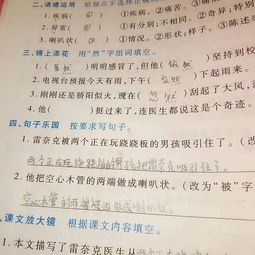 二、语境运用 给加点字选择正确
1. 疾病( ) ①疾病;②痛苦;③痛
2. 异常( ) ①有分别,不同;②奇异,特
3. 喇叭状( ) ①情况;②形状;样子。③陈述
三、锦上添花 用“然”字组词填空。
1. ( 虽然 )明明感冒了,但他( 依然 )坚持到校
2. 电视台预报今天有雨,下午( 果然 )下起雨来。
3. 刚才还是骄阳似火,现在( 忽然 )刮起了大风,
4. 他( )挺过来了,连医生都说这是个奇迹。
四、句子乐园 按要求写句子。
1. 雷奈克被两个正在玩跷跷板的男孩吸引住了。(
两个正在玩跷跷板的男孩把雷奈克吸引住了。
2. 他把空心木管的两端做成喇叭状。(改为“被”字
空心木管的两端被他做成喇叭状。
课文放大镜 根据课文内容填空。
1. 本文描写了雷奈克医生从